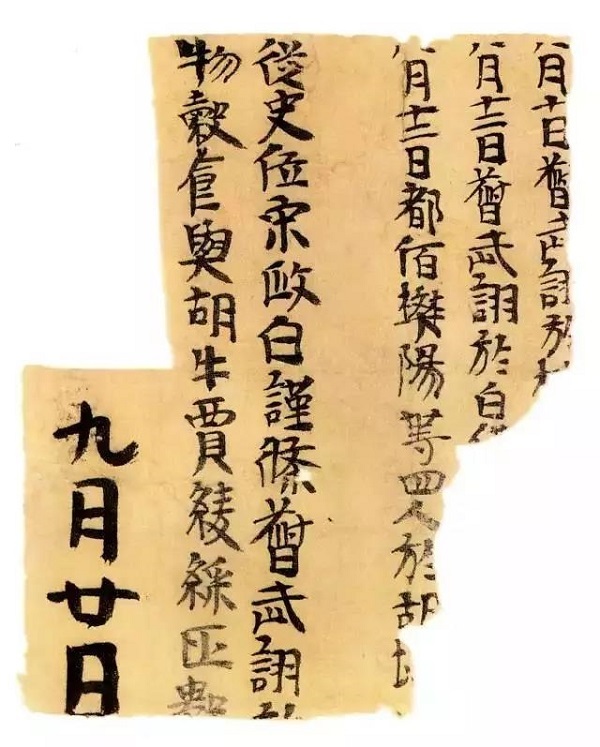 月十日督武詡於
月十二日督武詡於白
月十三日都佰樊陽等四人於胡
從史位宋政白謹條督武詡於
物穀食與胡牛賈綾綵匹數
九月廿日